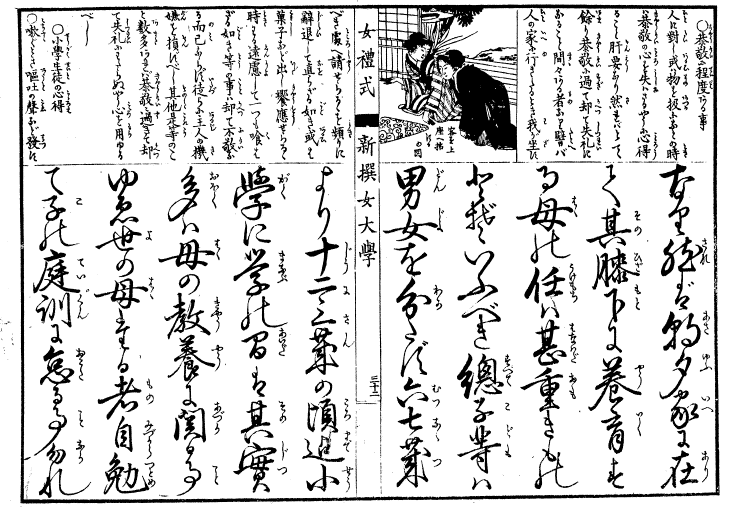 ○恭敬の程度ある事
人に對し或物を扱ふなどの時
恭敬の心を失はざるやう心得
ること肝要なり然るによりて
餘り恭敬に過て却て失礼に
なること間々ある者なり譬バ
人の家に行きたるとき我が坐に
客を上
座へ招
くの図
なり然ば朝夕家に在
て其膝下に養育す
る母の任は甚重きもの
といふべき總て子等は
男女を分たず六七歳
女禮式
新撰女大學
三十二
べき處へ請ぜらるゝを頻りに
辭退して直らざる如き或は
菓子など出して饗應せらるゝ
時にも遠慮して一つも喰はざ
るが如き等の事は却て不敬な
る而已ならず徒らに主人の機
嫌を損ずべし其他是等のこ
と數多あれば恭敬に過ぎて却
て失礼にならぬやう心を用ゆる
べし
○小學生徒の心得
○嗽くさめ嘔吐の聲など發
より十二三歳の頃迄小
學に学の間も其實は
多くは母の教養に関る事
ゆゑ世の母たる者自勉
て子の庭訓に怠る事勿れ